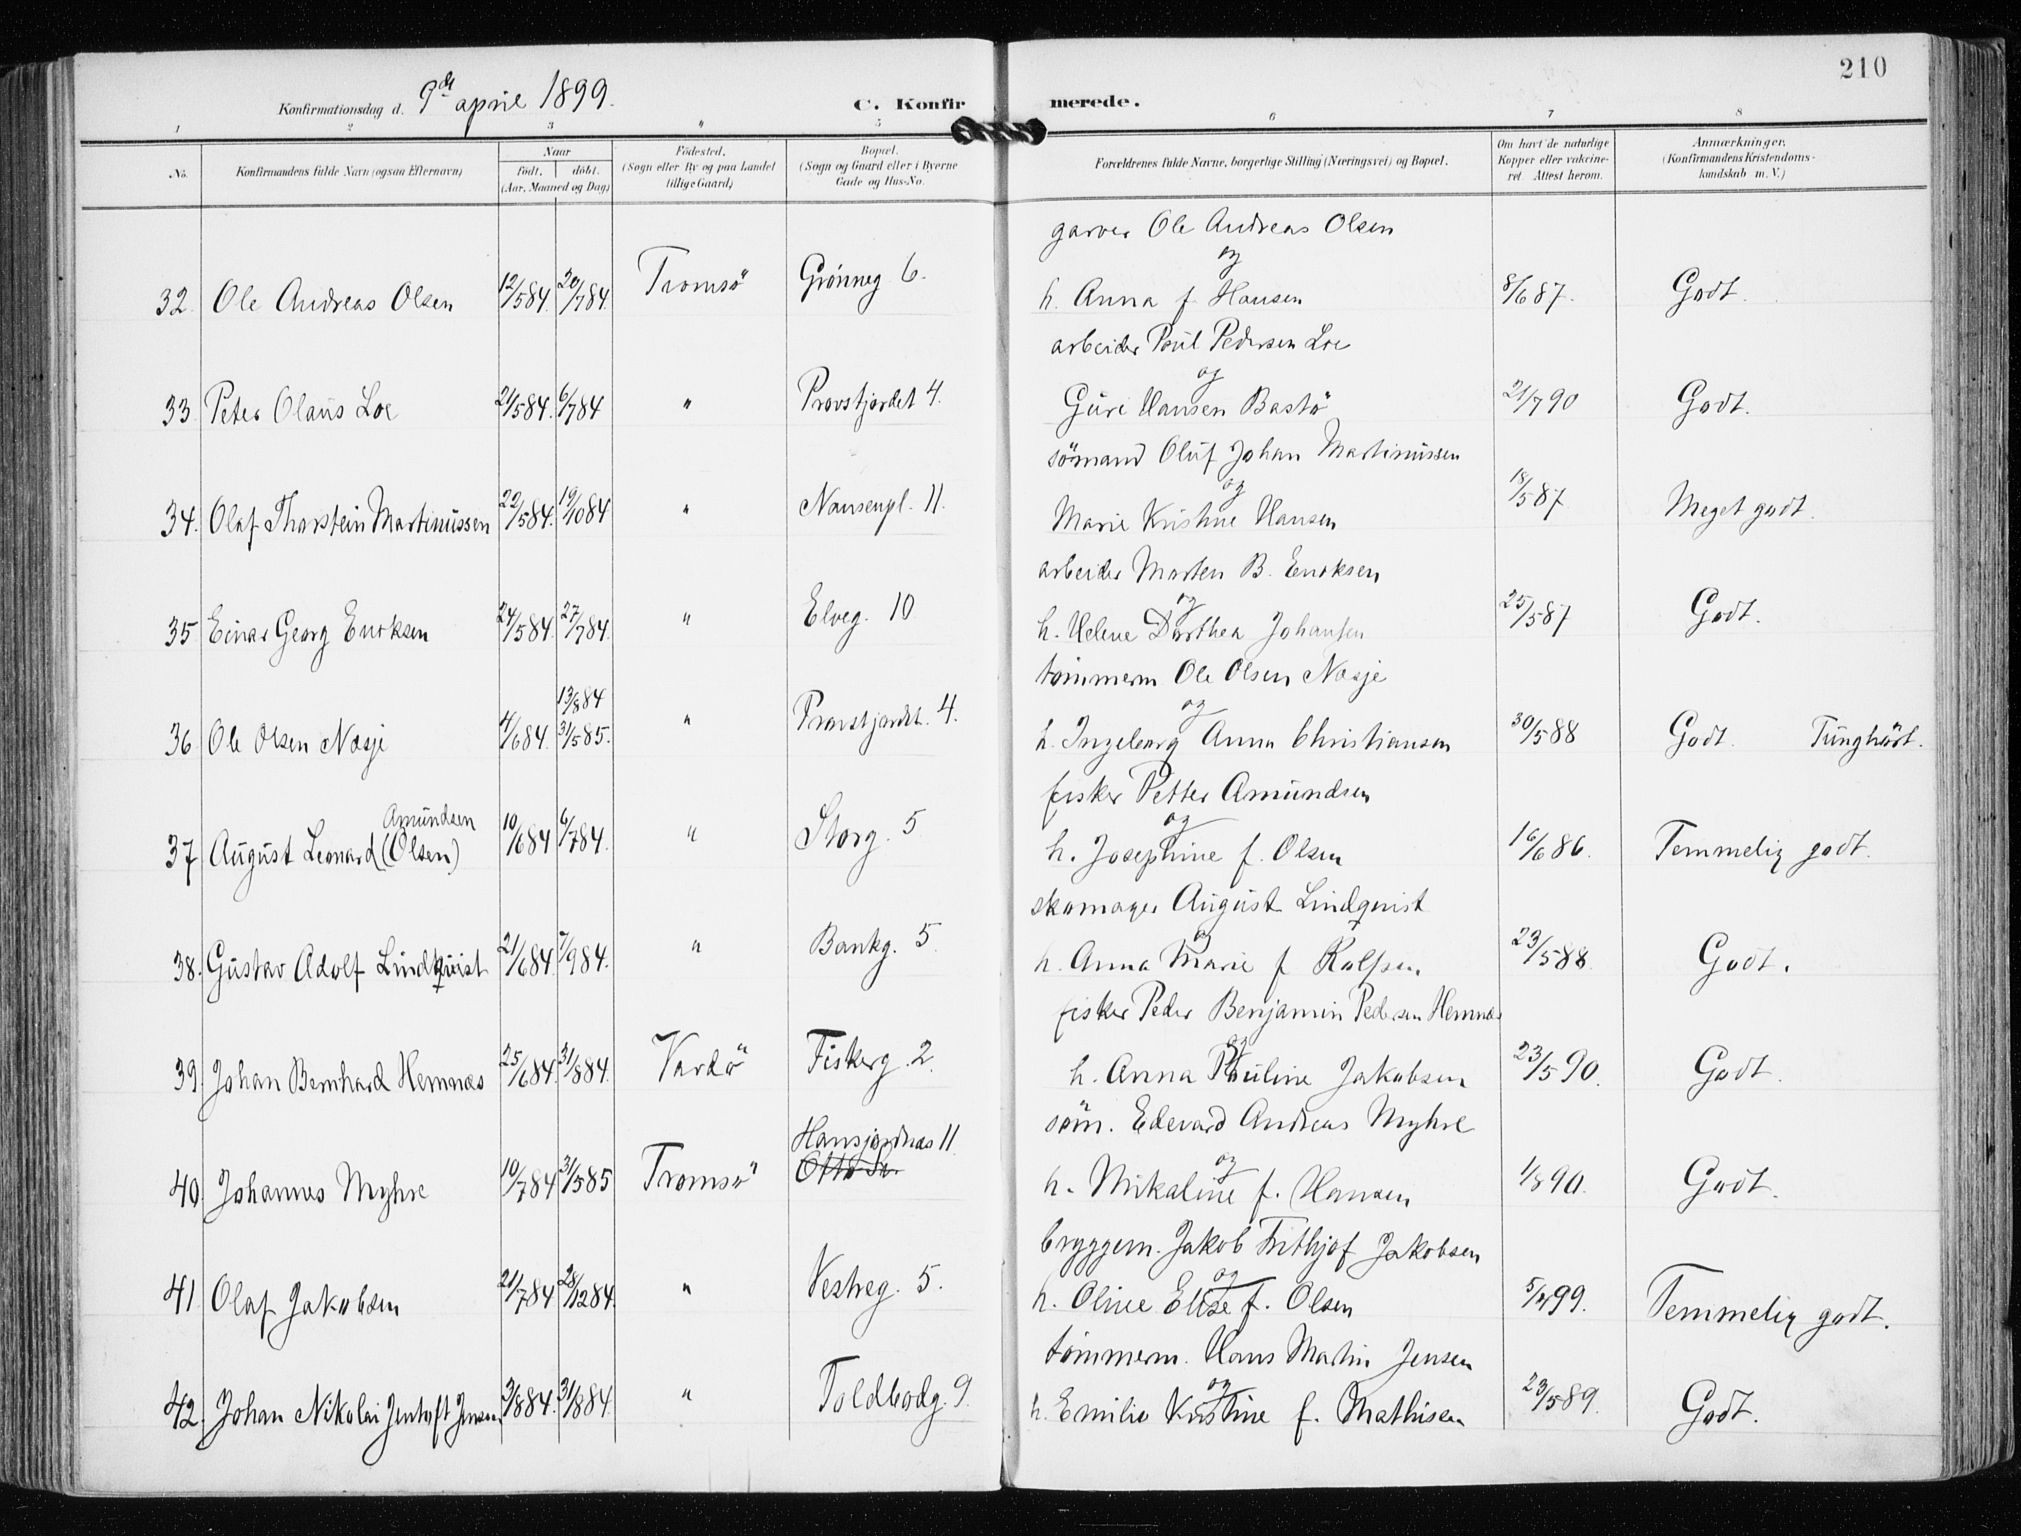 210
Konfirmationsdag d. 9de april 1899.
C. Konfirmerede.
1 2 3 " 5 6 7 8
No. Konfirmandens fulde Navn (ogsaa Efternavn) Naar født, døbt. (Aar, Maaned og Dag) Fødested. (Sogn eller By og paa Landet tillige Gaard) Bopæl. (Sogn og Gaard eller i Byerne Gade og Hus-No. Forældrenes fulde Navne, borgerlige Stilling (Næringsvei) og Bopæl. Om havt de naturlige Kopper eller vakcineret. Attest herom. Anmærkninger. (Konfirmandens Kristendomskundskab m. V.)
garver Ole Andreas Olsen
og
32. Ole Andreas Olsen 12/5 84. 20/7 84. Tromsö Grönneg 6. h. Anna f. Hansen 8/6 87. Godt.
arbeider Poul Pedersen Loe
og
33. Peter Olaus Loe 21/5 84. 6/7 84 " Provstjordet 4. Guri Hansen Bastö 21/7 90 Godt.
sömand Oluf Johan Martinussen
og
34. Olaf Thorstein Martinussen 22/5 84. 19/10 84 " Nansenpl. 11. Marie Kristine Hansen 18/5 87 Meget godt.
arbeider Morten B. Enoksen
og
35 Einar Georg Enoksen 24/5 84. 27/7 84. " Elveg. 10 h. Helene Dorthea Johansen 25/5 87 Godt.
tömmerm Ole Olsen Næsje
og
36. Ole Olsen Næsje 4/6 84. 13/8 84 31/5 85. " Provstjordet. 4. h. Ingeborg Anna Christiansen 30/5 88 Godt. Tunghört.
fisker Petter Amundsen
og
37 August Leonard (Olsen) Amundsen 10/6 84 6/7 84. " Storg. 5 h. Josephine f. Olsen 16/6 86. Temmelig godt.
skomager August Lindqvist
og
38. Gustav Adolf Lindqvist 21/6 84. 7/9 84. " Bankg. 5. h. Anna Marie f Rolfsen 23/5 88. Godt.
fisker Peder Benjamin Pedersen Hemnæs
og
39. Johan Bernhard Hemnæs 25/6 84. 31/8 84. Vardö Fiskerg. 2. h. Anna Pauline Jakobsen 23/5 90. Godt.
söm. Edevard Andreas Myhre
og
40. Johannes Myhre 10/7 84 31/5 85 Tromsö Hansjordnæs 11 h. Mikaline f. Hansen 1/8 90. Godt.
bryggem. Jakob Frithjof Jakobsen
og
41. Olaf Jakobsen 21/7 84 28/12 84. " Vestreg. 5. h. Oline Elise f. Olsen 99. Temmelig godt.
tömmerm. Hans Martin Jensen
og
42. Johan Nikolai Jentoft Jensen 3/8 84. 31/8 84. " Toldbodg. 9. h. Emilie Kristine f. Mathisen 23/5 89. Godt.